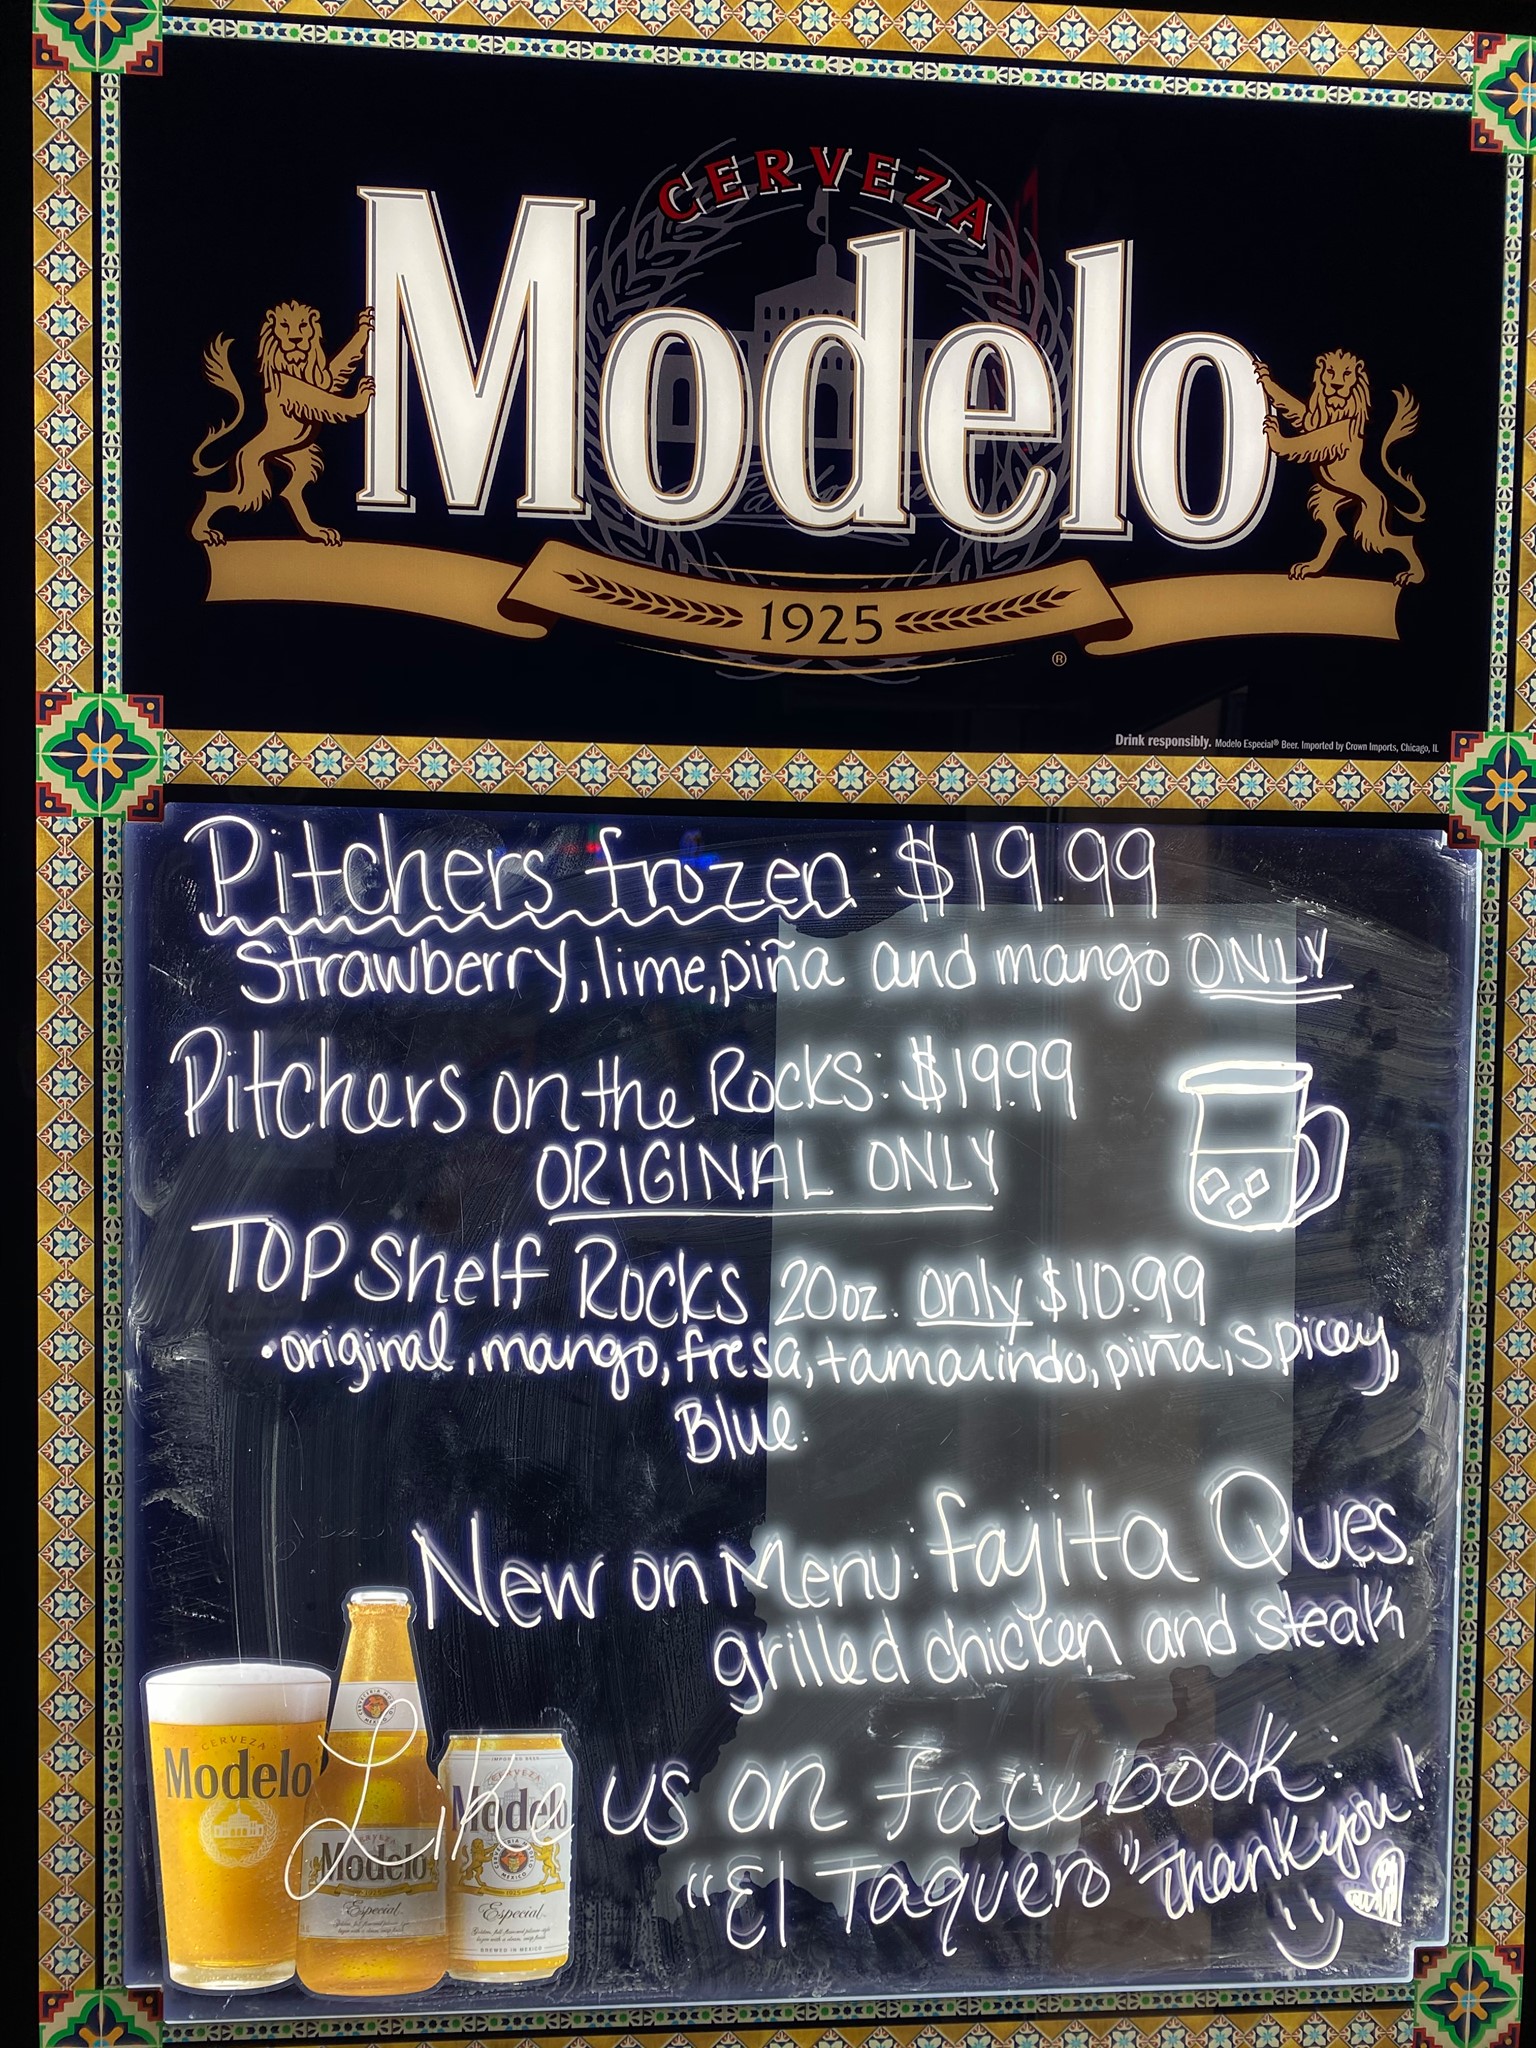 CERVEZA
Modelo
1925
®
Drink responsibly. Modelo Especial® Beer. Imported by Crown Imports, Chicago, IL
Pitchers frozen: $19.99
Strawberry, lime, piña and mango ONLY
Pitchers on the Rocks: $19.99
ORIGINAL ONLY
TOP Shelf Rocks 20oz. only $10.99
•original, mango, fresa, tamarindo, piña, spicey,
Blue.
New on Menu: fajita Ques.
grilled chicken and steak
Like us on facebook:
"El Taquero" Thank you!
CERVEZA
Modelo
CERVEZA
Modelo
Especial
IMPORTED BEER
CERVEZA
Modelo
MEXICO
1925
Especial
BREWED IN MEXICO